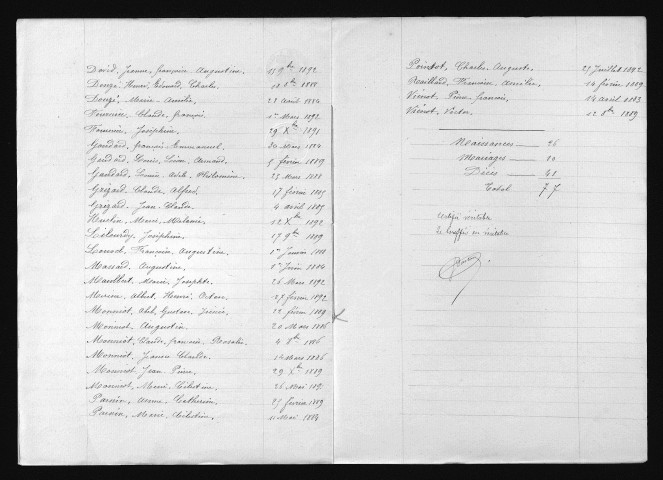 David, Jeanne, françoise Augustine. 9bre 1892
Douzé, Henri, Edouard, Charles. 1888
Douzé, Marie Amélie. 22 avril 1884
Fournier, Claude, françois. 1er Mars 1892
Joséphine. 29 Xbre 1891
Gaudard, françois Emmanuel. 30 Mars 1884
Gaudard, Louis, Léon, Armand. 5 février 1889
Gaudard, Louis Philomin. 25 Mars 1888
Grizard, Claude, Alfred. 17 février 1885
Grizard, Jean Claude. 4 avril 1885
Marie, Mélanie. 12 Xbre 1892
Joséphine. 17 9bre 1889
Augustine. 1er Janvier 1888
Massard, Augustine. 1er Juin 1884
Marie, Josephte. 26 Mars 1892
Albert, Henri, 27 février 1892
Monniot, Gustave, 22 février 1889
Monniot, Augustin. 20 Mars 1886
Monniot, Claude, françois, 4 8bre 1886
Monniot, Jeanne Claude. 14 Mars 1886
Monniot, Jean Pierre. 29 Xbre 1889
Monniot, Marie, Célestine. 26 Mai 1891
Parvin, Anne, Catherine. 25 février 1889
Parvin, Marie, Célestine. 11 Mai 1884
Charles, Auguste. 25 Juillet 1892
Raillard, Amélie. 14 février 1889
Viénot, Pierre, françois. 14 avril 1883
Viénot, Victor. 12 8bre 1889
Naissances — 26
Mariages — 10
Décès — 41
Total 77
Certifié véritable
Le Greffier en